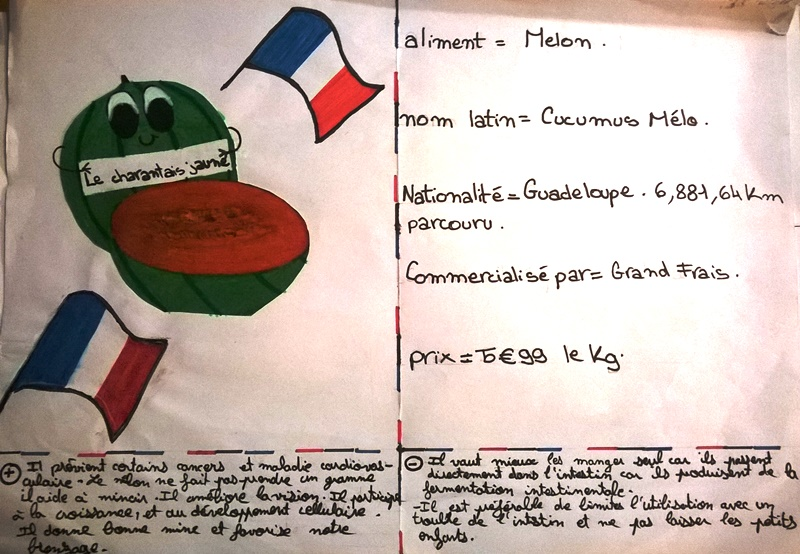 Le charantais jaune
aliment = Melon.
nom latin = Cucumus Mélo.
Nationalité = Guadeloupe. 6,881,64 Km
parcouru.
Commercialisé par = Grand Frais.
prix = 5€99 le Kg.
+ Il prévient certains cancers et maladie cardiovas-
culaire. Le Melon ne fait pas prendre un gramme
il aide à mincir. Il améliore la vision. Il participe
à la croissance, et au développement cellulaire.
Il donne bonne mine et favorise notre
bronzage.
- Il vaut mieux les manger seul car ils passent
directement dans l'intestin car ils produisent de la
fermentation intestinale.
- Il est préférable de limiter l'utilisation avec un
trouble de l'intestin et ne pas laisser les petits
enfants.